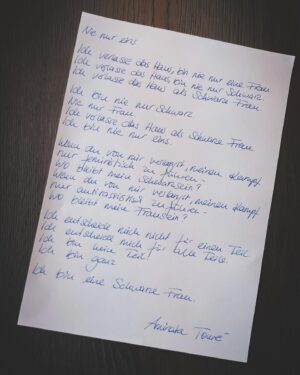 Nie nur eins
Ich verlasse das Haus, bin nie nur eine Frau.
Ich verlasse das Haus, bin nie nur Schwarz.
Ich verlasse das Haus als Schwarze Frau.
Ich bin nie nur Schwarz
Nie nur Frau.
Ich verlasse das Haus als Schwarze Frau.
Ich bin nie nur eins.
Wenn du von mir verlangst, meinen Kampf
nur feministisch zu führen -
Wo bleibt mein Schwarzsein?
Wenn du von mir verlangst, meinen Kampf
nur antirassistisch zu führen -
Wo bleibt mein Frausein?
Ich entscheide mich nicht für einen Teil
Ich entscheide mich für alle Teile.
Ich bin kein Teil
Ich bin ganz
Ich bin eine Schwarze Frau.
Aminata Touré